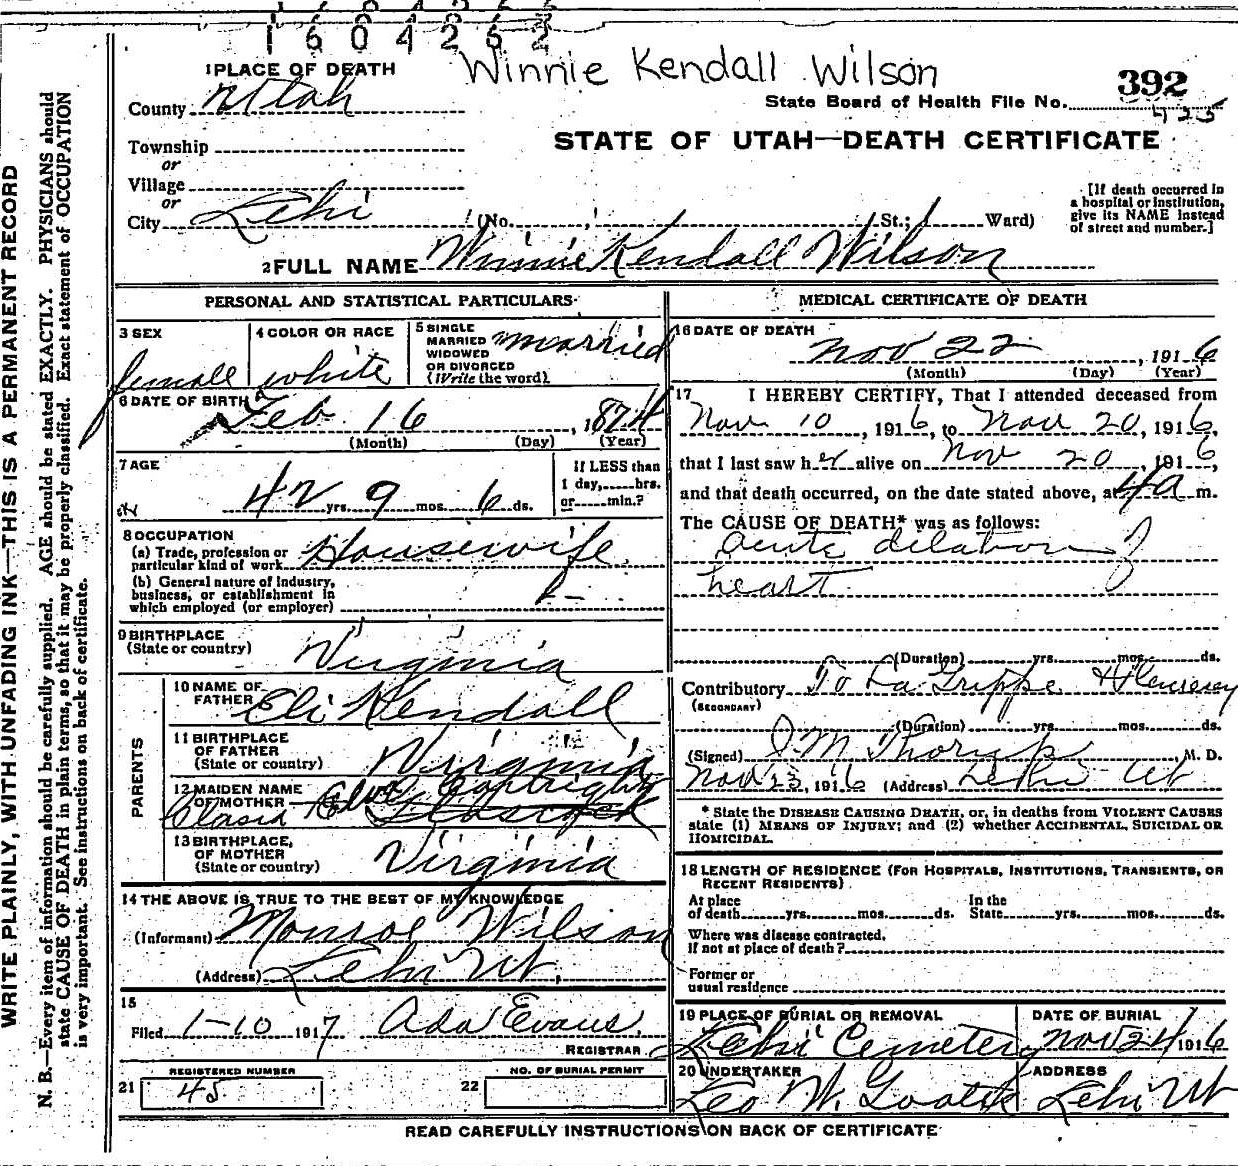 1604262
Winnie Kendall Wilson
392
425
1 PLACE OF DEATH
County Utah
State Board of Health File No.
STATE OF UTAH—DEATH CERTIFICATE
Township
or
Village
or
City Lehi (No. , St.; Ward)
[If death occurred in
a hospital or institution,
give its NAME instead
of street and number.]
2 FULL NAME Winnie Kendall Wilson
PERSONAL AND STATISTICAL PARTICULARS
3 SEX
female
4 COLOR OR RACE
white
5 SINGLE
MARRIED
WIDOWED
OR DIVORCED
(Write the word)
married
6 DATE OF BIRTH
Feb 16, 1874
(Month) (Day) (Year)
7 AGE
42 yrs. 9 mos. 6 ds.
If LESS than
1 day, hrs.
or min.?
8 OCCUPATION
(a) Trade, profession or
particular kind of work Housewife
(b) General nature of industry,
business, or establishment in
which employed (or employer)
9 BIRTHPLACE
(State or country) Virginia
PARENTS
10 NAME OF
FATHER Eli Kendall
11 BIRTHPLACE
OF FATHER
(State or country) Virginia
12 MAIDEN NAME
OF MOTHER
13 BIRTHPLACE
OF MOTHER
(State or country) Virginia
14 THE ABOVE IS TRUE TO THE BEST OF MY KNOWLEDGE
(Informant) Monroe Wilson
(Address) Lehi Ut.
15
Filed 1-10 1917 Ada Evans.
REGISTRAR
REGISTERED NUMBER
21 45
NO. OF BURIAL PERMIT
22
MEDICAL CERTIFICATE OF DEATH
16 DATE OF DEATH
Nov 22, 1916
(Month) (Day) (Year)
17 I HEREBY CERTIFY, That I attended deceased from
Nov 10, 1916, to Nov 20, 1916,
that I last saw her alive on Nov 20, 1916,
and that death occurred, on the date stated above, at 4 a m.
The CAUSE OF DEATH* was as follows:
acute dilation of
heart
(Duration) yrs. mos. ds.
Contributory To La Grippe &
(SECONDARY)
(Duration) yrs. mos. ds.
(Signed) Thorup, M. D.
Nov 23, 1916 (Address) Lehi Ut
* State the DISEASE CAUSING DEATH, or, in deaths from VIOLENT CAUSES
state (1) MEANS OF INJURY; and (2) whether ACCIDENTAL, SUICIDAL OR
HOMICIDAL.
18 LENGTH OF RESIDENCE (FOR HOSPITALS, INSTITUTIONS, TRANSIENTS, OR
RECENT RESIDENTS)
At place
of death yrs. mos. ds.
In the
State yrs. mos. ds.
Where was disease contracted,
If not at place of death?
Former or
usual residence
19 PLACE OF BURIAL OR REMOVAL
Lehi Cemetery
DATE OF BURIAL
Nov 24 1916
20 UNDERTAKER
Leo W.
ADDRESS
Lehi Ut
READ CAREFULLY INSTRUCTIONS ON BACK OF CERTIFICATE
WRITE PLAINLY, WITH UNFADING INK—THIS IS A PERMANENT RECORD
N. B.—Every item of information should be carefully supplied. AGE should be stated EXACTLY. PHYSICIANS should
state CAUSE OF DEATH in plain terms, so that it may be properly classified. Exact statement of OCCUPATION
is very important. See instructions on back of certificate.